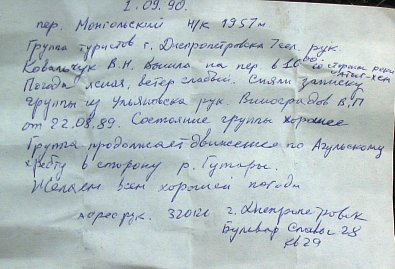 1.09.90.
пер. Монгольский Н/К 1957м
Группа туристов г. Днепропетровска 7 чел. рук.
Ковальчук В.Н. вышла на пер. в 16 00 со стороны реки
Погода ясная, ветер слабый. Сняли записку
группы из Ульяновска рук. Виноградов В.П
от 22.08.89. Состояние группы хорошее
Группа продолжает движение по Агульскому
хребту в сторону р. Гутары.
Желаем всем хорошей погоды
Адрес рук. 320121 г. Днепропетровск
Бульвар Славы 28
кв 29